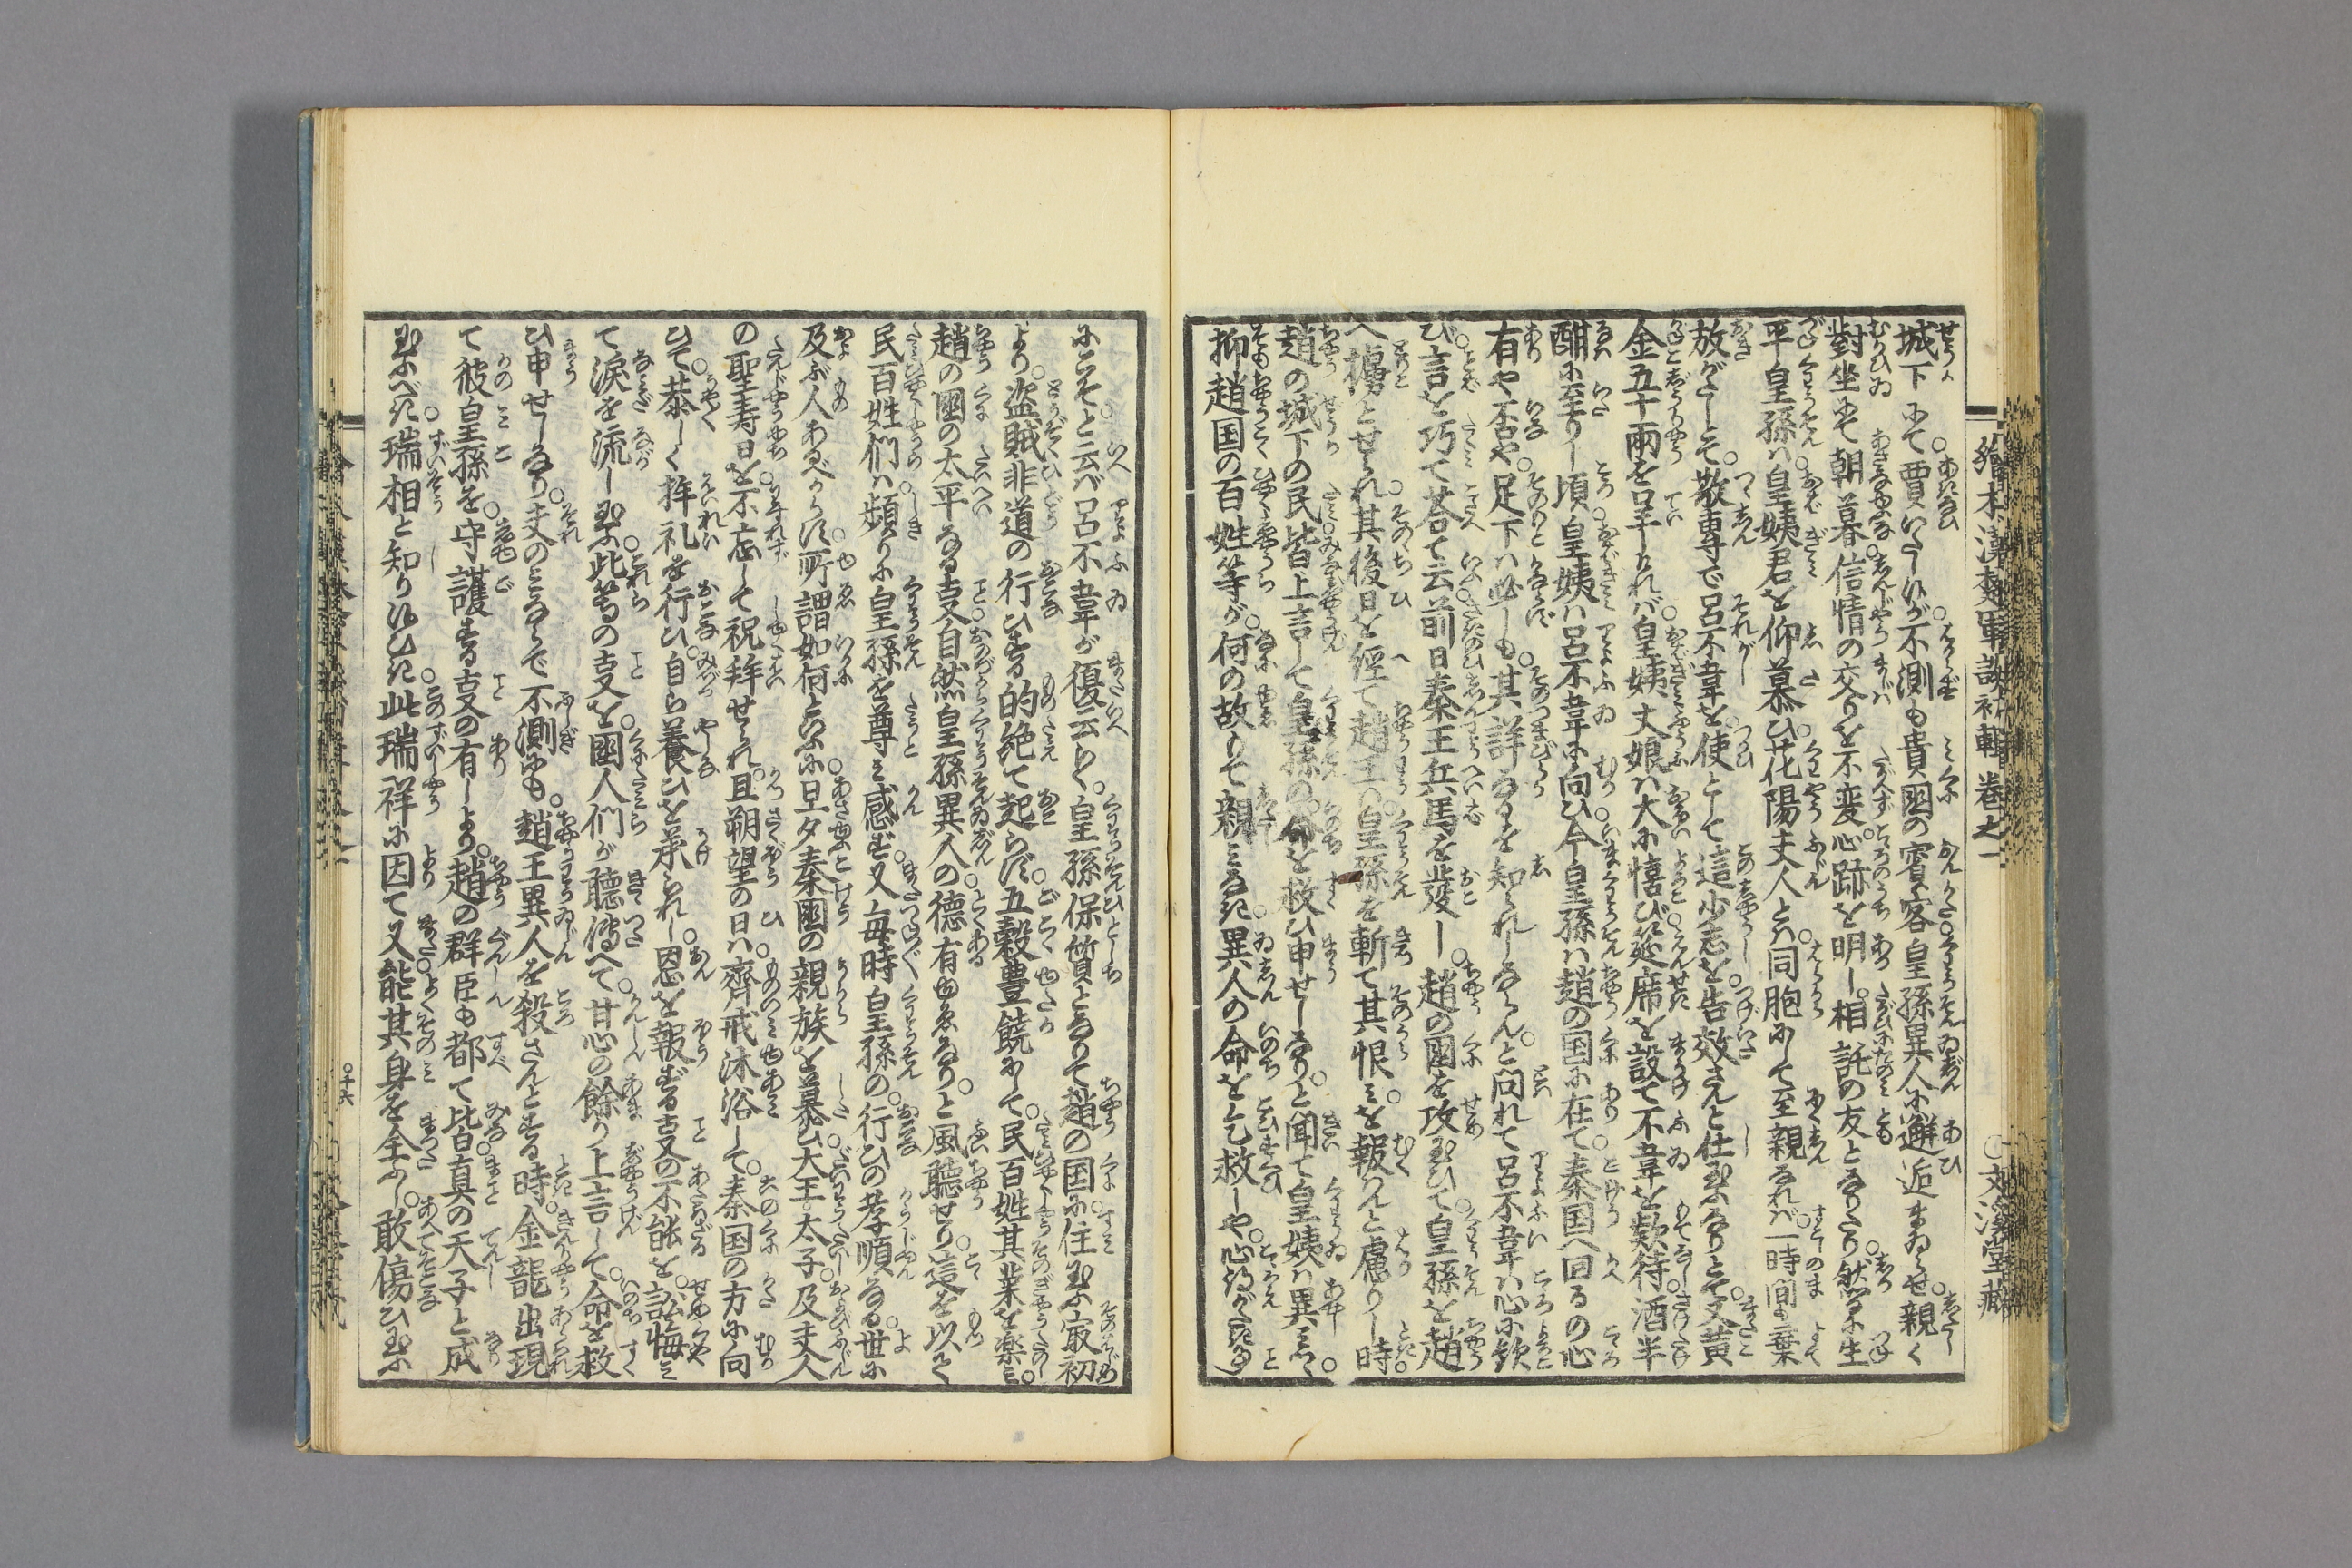 繪本漢楚軍談初輯卷之一　○文渓堂藏
城下にて賈いたし候が不測も貴國の賓客皇孫異人に邂逅まゐらせ親く
對坐して朝暮信情の交りを不変心跡を明し相託の友となりたり然るに生
平皇孫ハ皇姨君を仰慕ひ花陽夫人とハ同胞にして至親なれバ一時間も棄
放がたしとて敬専で呂不韋を使として這小志を告效さんと仕玉ふなりとて又黄
金五十兩を呈けれバ皇姨丈娘ハ大に憘び筵席を設て不韋を欵待酒半
酣に至りし頃皇姨ハ呂不韋に向ひ今皇孫ハ趙の国に在て秦国へ回るの心
有や否や足下ハ必しも其詳なるを知られしならんと問れて呂不韋ハ心に欽
び言を巧て荅て云前日秦王兵馬を發し趙の國を攻玉ひて皇孫を趙
へ擄とせられ其後日を經て趙王ハ皇孫を斬て其恨ミを報ハんと慮りし時
趙の城下の民皆上言して皇孫の命を救ひ申せしなりと聞て皇姨ハ異ミ
抑趙国の百姓等が何の故もて親ミなき異人の命を乞救しや心得がたき事
にこそと云バ呂不韋が復云らく皇孫保質となりて趙の国に住玉ふ寂初
より盗賊非道の行ひする的絶て起らず五穀豊饒にして民百姓其業を楽ミ
趙の國の太平なる叓自然皇孫異人の德有ゆゑなりと風聽せり這を以て
民百姓們ハ頻りに皇孫を尊ミ感ず又毎時皇孫の行ひの孝順なる世に
及ぶ人あるべからず所謂如何といふに旦夕秦國の親族を慕ひ大王太子及夫人
の聖寿日を不忘して祝拜せられ且朔望の日ハ齊戒沐浴して秦国の方に向
ひて恭しく拜礼を行ひ自ら養ひを承られし恩を報ずる叓の不能を訟悔ミ
て淚を流し玉ふ此等の叓を國人們が聽傳へて甘心の餘り上言して命を救
ひ申せしなり夫のミならで不測にも趙王異人を殺さんとする時金龍出現
て彼皇孫を守護する叓の有しより趙の群臣も都て皆真の天子と成
玉ふべき瑞相と知り候ひき此瑞祥に因て又能其身を全ふし敢傷ひ玉ふ
○十六